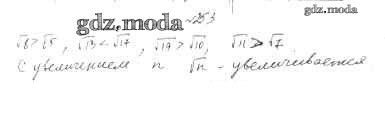 gdz.moda №253
gdz.moda
√6>√5, √13<√17, √19>√10, √11>√7.
С увеличением n √n - увеличивается